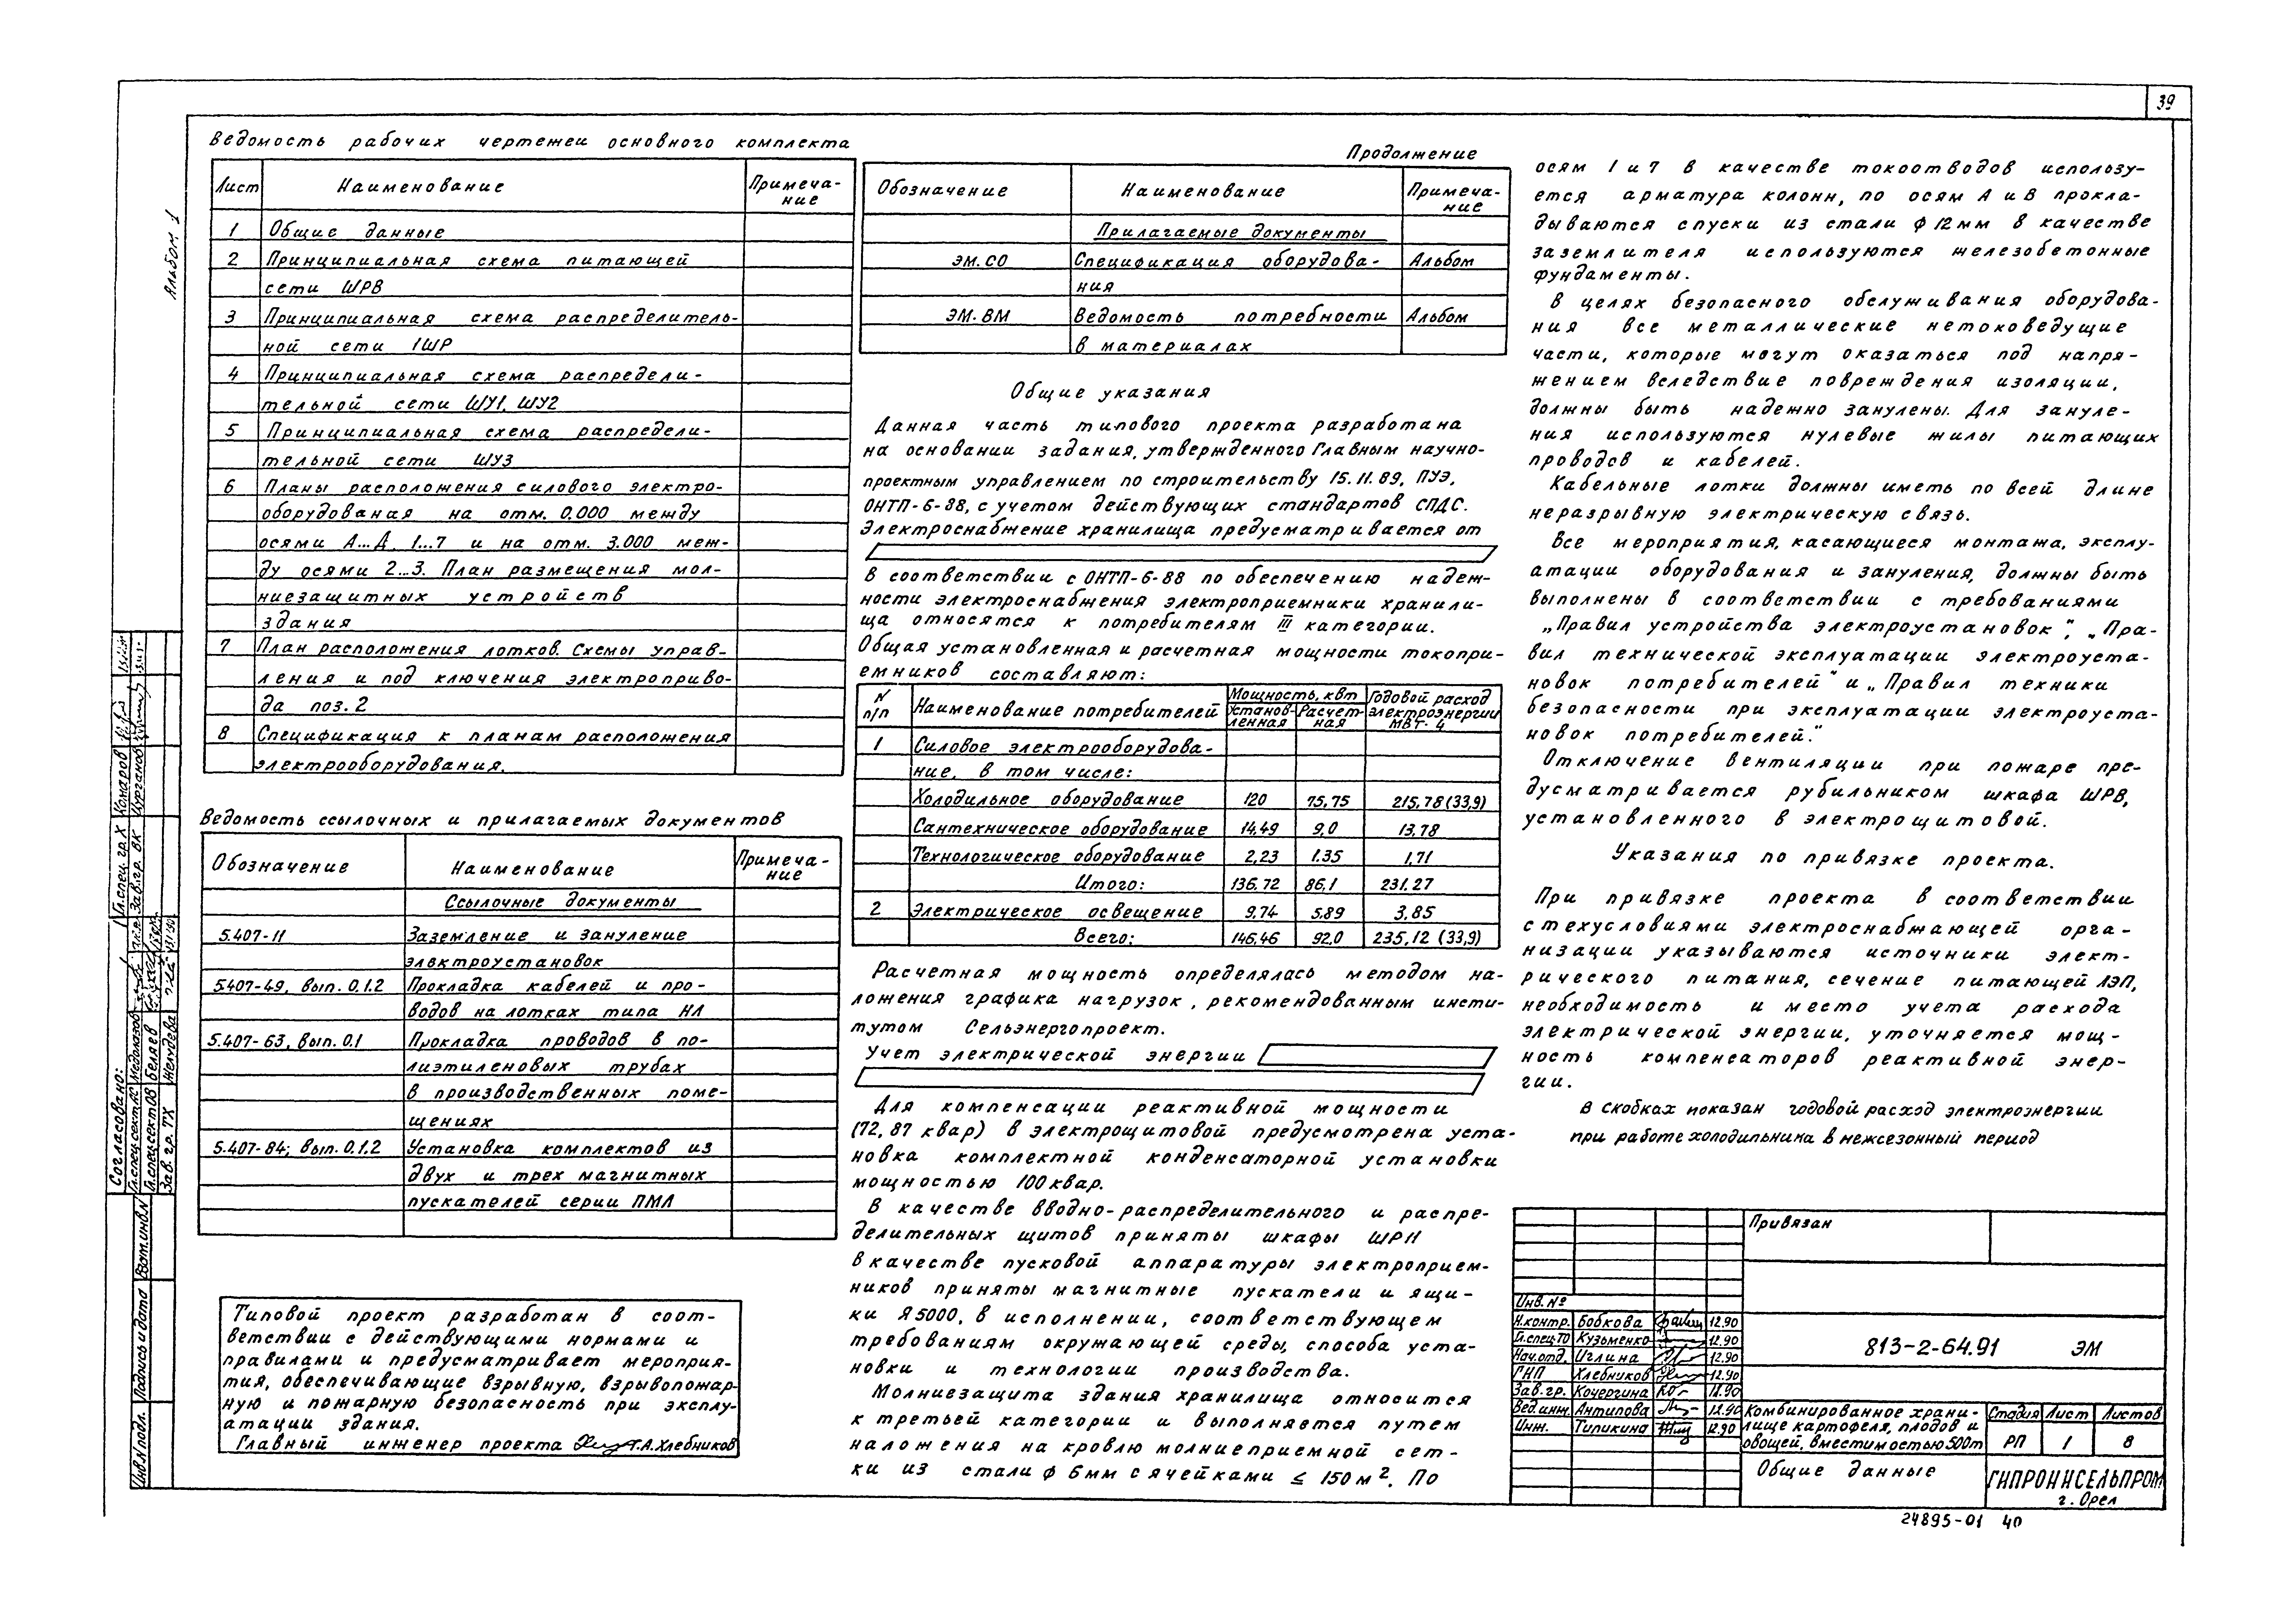 39
Альбом 1
Ведомость рабочих чертежей основного комплекта
Лист Наименование Примеча-
ние
1 Общие данные
2 Принципиальная схема питающей
сети ШРВ
3 Принципиальная схема распределитель-
ной сети 1ШР
4 Принципиальная схема распредели-
тельной сети ШУ1, ШУ2
5 Принципиальная схема распредели-
тельной сети ШУ3
6 Планы расположения силового электро-
оборудованая на отм. 0.000 между
осями А...Д, 1...7 и на отм. 3.000 меж-
ду осями 2...3. План размещения мол-
ниезащитных устройств
здания
7 План расположения лотков. Схемы управ-
ления и под ключения электроприво-
да поз. 2
8 Спецификация к планам расположения
электрооборудования.
Ведомость ссылочных и прилагаемых документов
Обозначение Наименование Примеча-
ние
Ссылочные документы
5.407-11 Заземление и зануление
электроустановок
5.407-49, вып. 0.1.2 Прокладка кабелей и про-
водов на лотках типа НЛ
5.407-63, вып. 0.1 Прокладка проводов в по-
лиэтиленовых трубах
в производственных поме-
щениях
5.407-84; вып. 0.1.2 Установка комплектов из
двух и трех магнитных
пускателей серии ПМЛ
Типовой проект разработан в соот-
ветствии с действующими нормами и
правилами и предусматривает мероприя-
тия, обеспечивающие взрывную, взрывопожар-
ную и пожарную безопасность при эксплу-
атации здания.
Главный инженер проекта Т.А.Хлебников
Продолжение
Обозначение Наименование Примеча-
ние
Прилагаемые документы
ЭМ.СО Спецификация оборудова- Альбом
ния
ЭМ.ВМ Ведомость потребности Альбом
в материалах
Общие указания
Данная часть типового проекта разработана
на основании задания, утвержденного Главным научно-
проектным управлением по строительству 15.11.89, ПУЭ,
ОНТП-6-88, с учетом действующих стандартов СПДС.
Электроснабжение хранилища предусматривается от
В соответствии с ОНТП-6-88 по обеспечению надеж-
ности электроснабжения электроприемники хранили-
ща относятся к потребителям III категории.
Общая установленная и расчетная мощности токопри-
емников составляют:
N п/п Наименование потребителей Мощность, квт Годовой расход
Установ- Расчет- электроэнергии
ленная ная МВТ. ч
1 Силовое электрооборудова-
ние, в том числе:
Холодильное оборудование 120 75,75 215,78 (33,9)
Сантехническое оборудование 14,49 9,0 13,78
Технологическое оборудование 2,23 1.35 1,71
Итого: 136,72 86,1 231,27
2 Электрическое освещение 9,74 5,89 3,85
Всего: 146,46 92,0 235,12 (33,9)
Расчетная мощность определялась методом на-
ложения графика нагрузок, рекомендованным инсти-
тутом Сельэнергопроект.
Учет электрической энергии
Для компенсации реактивной мощности
(72,87 квар) в электрощитовой предусмотрена уста-
новка комплектной конденсаторной установки
мощностью 100 квар.
В качестве вводно-распределительного и распре-
делительных щитов приняты шкафы ШР11
в качестве пусковой аппаратуры электроприем-
ников приняты магнитные пускатели и ящи-
ки Я5000, в исполнении, соответствующем
требованиям окружающей среды, способа уста-
новки и технологии производства.
Молниезащита здания хранилища относится
к третьей категории и выполняется путем
наложения на кровлю молниеприемной сет-
ки из стали ф 6мм с ячейками ≤ 150 м². По
осям 1 и 7 в качестве токоотводов использу-
ется арматура колонн, по осям А и В прокла-
дываются спуски из стали ф 12 мм в качестве
заземлителя используются железобетонные
фундаменты.
В целях безопасного обслуживания оборудова-
ния все металлические нетоковедущие
части, которые могут оказаться под напря-
жением вследствие повреждения изоляции,
должны быть надежно занулены. Для зануле-
ния используются нулевые жилы питающих
проводов и кабелей.
Кабельные лотки должны иметь по всей длине
неразрывную электрическую связь.
Все мероприятия, касающиеся монтажа, эксплу-
атации оборудования и зануления, должны быть
выполнены в соответствии с требованиями
„Правил устройства электроустановок", „Пра-
вил технической эксплуатации электроуста-
новок потребителей" и „Правил техники
безопасности при эксплуатации электроуста-
новок потребителей."
Отключение вентиляции при пожаре пре-
дусматривается рубильником шкафа ШРВ,
установленного в электрощитовой.
Указания по привязке проекта.
При привязке проекта в соответствии
с техусловиями электроснабжающей орга-
низации указываются источники элект-
рического питания, сечение питающей ЛЭП,
необходимость и место учета расхода
электрической энергии, уточняется мощ-
ность компенсаторов реактивной энер-
гии.
В скобках показан годовой расход электроэнергии
при работе холодильника в межсезонный период
Привязан
Инв. №
Н.контр. Бобкова 12.90
Гл.спец.ТО Кузьменко 12.90
Нач.отд. Иглина 12.90
ГНП Хлебников 12.90
Зав. гр. Кочергина 12.90
Вед.инж. Антипова 12.90
Инж. Типикина 12.90
813-2-64.91 ЭМ
Комбинированное храни-
лище картофеля, плодов и
овощей, вместимостью 500т
Стадия Лист Листов
РП 1 8
Общие данные
ГИПРОНИСЕЛЬПРОМ
г. Орел
24895-01 40
Согласовано:
Гл.спец. гр.Х Комаров
Зав.гр. ВК Цурганов
Гл.спец.сект.ОВ Беляев
Зав. гр. ТХ Желудева
Инв.N подл. Подпись и дата Взам.инв.N